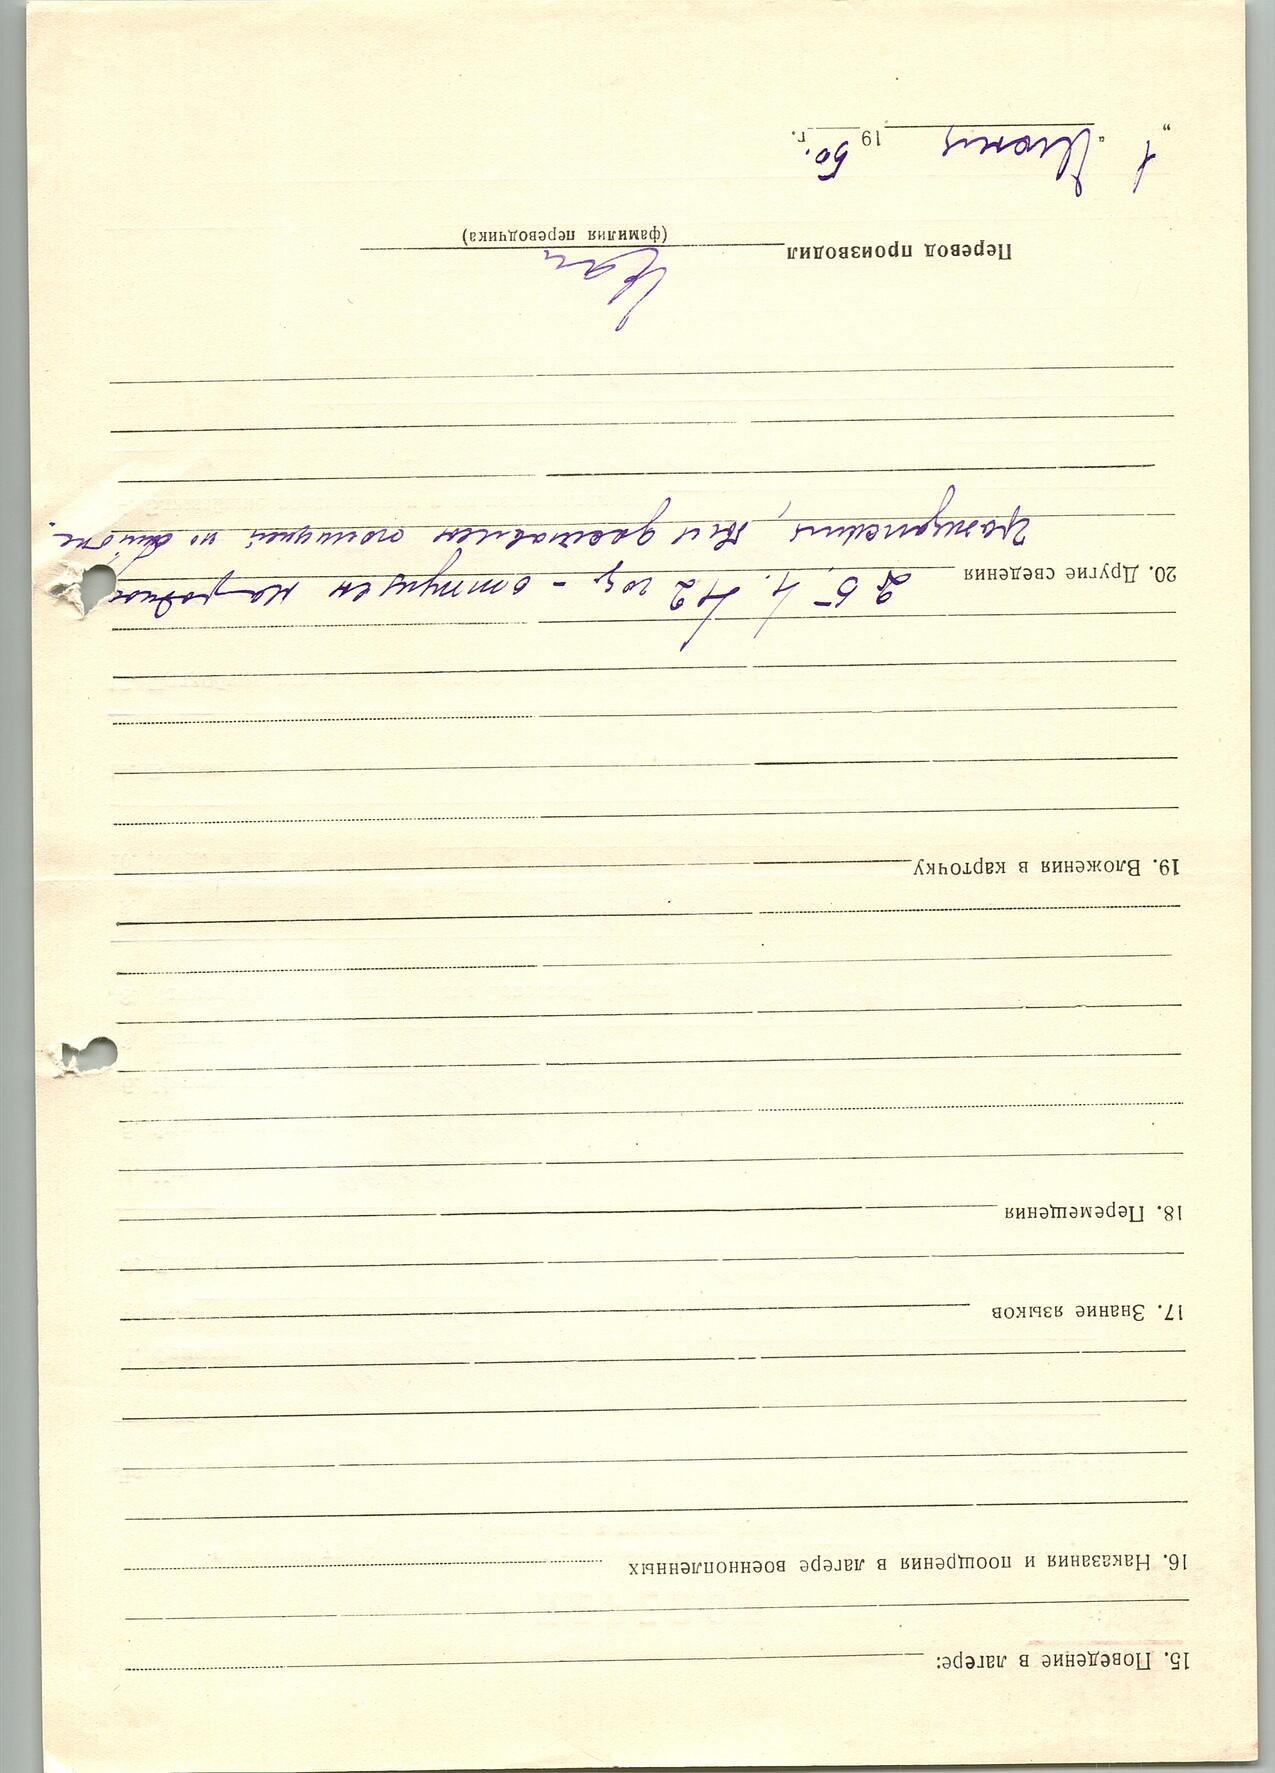 15. Поведение в лагере:
16. Наказания и поощрения в лагере военнопленных
17. Знание языков
18. Перемещения
19. Вложения в карточку
20. Другие сведения 25. 4. 42 год - отпущен на
был доставлен полицией
Перевод производил
(фамилия переводчика)
„1“ Июня 1950 г.